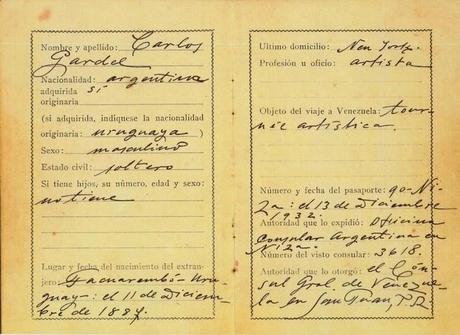 Nombre y apellido: Carlos
Gardel
Nacionalidad: argentina
adquirida sí
originaria
(si adquirida, indíquese la nacionalidad
originaria: uruguaya)
Sexo: masculino
Estado civil: soltero
Si tiene hijos, su número, edad y sexo:
no tiene
Lugar y fecha del nacimiento del extran-
jero: Tacuarembó-Uru-
guay: el 11 de Diciem-
bre de 1887.
Ultimo domicilio: New York.
Profesión u oficio: artista
Objeto del viaje a Venezuela: tour-
née artística.
Número y fecha del pasaporte: 90-Ni-
za: el 13 de Diciembre
1932.
Autoridad que lo expidió: Oficina
Consular Argentina en
Niza.
Número del visto consular: 3618.
Autoridad que lo otorgó: el Cón-
sul Gral. de Venezue-
la en San Juan, P.R.